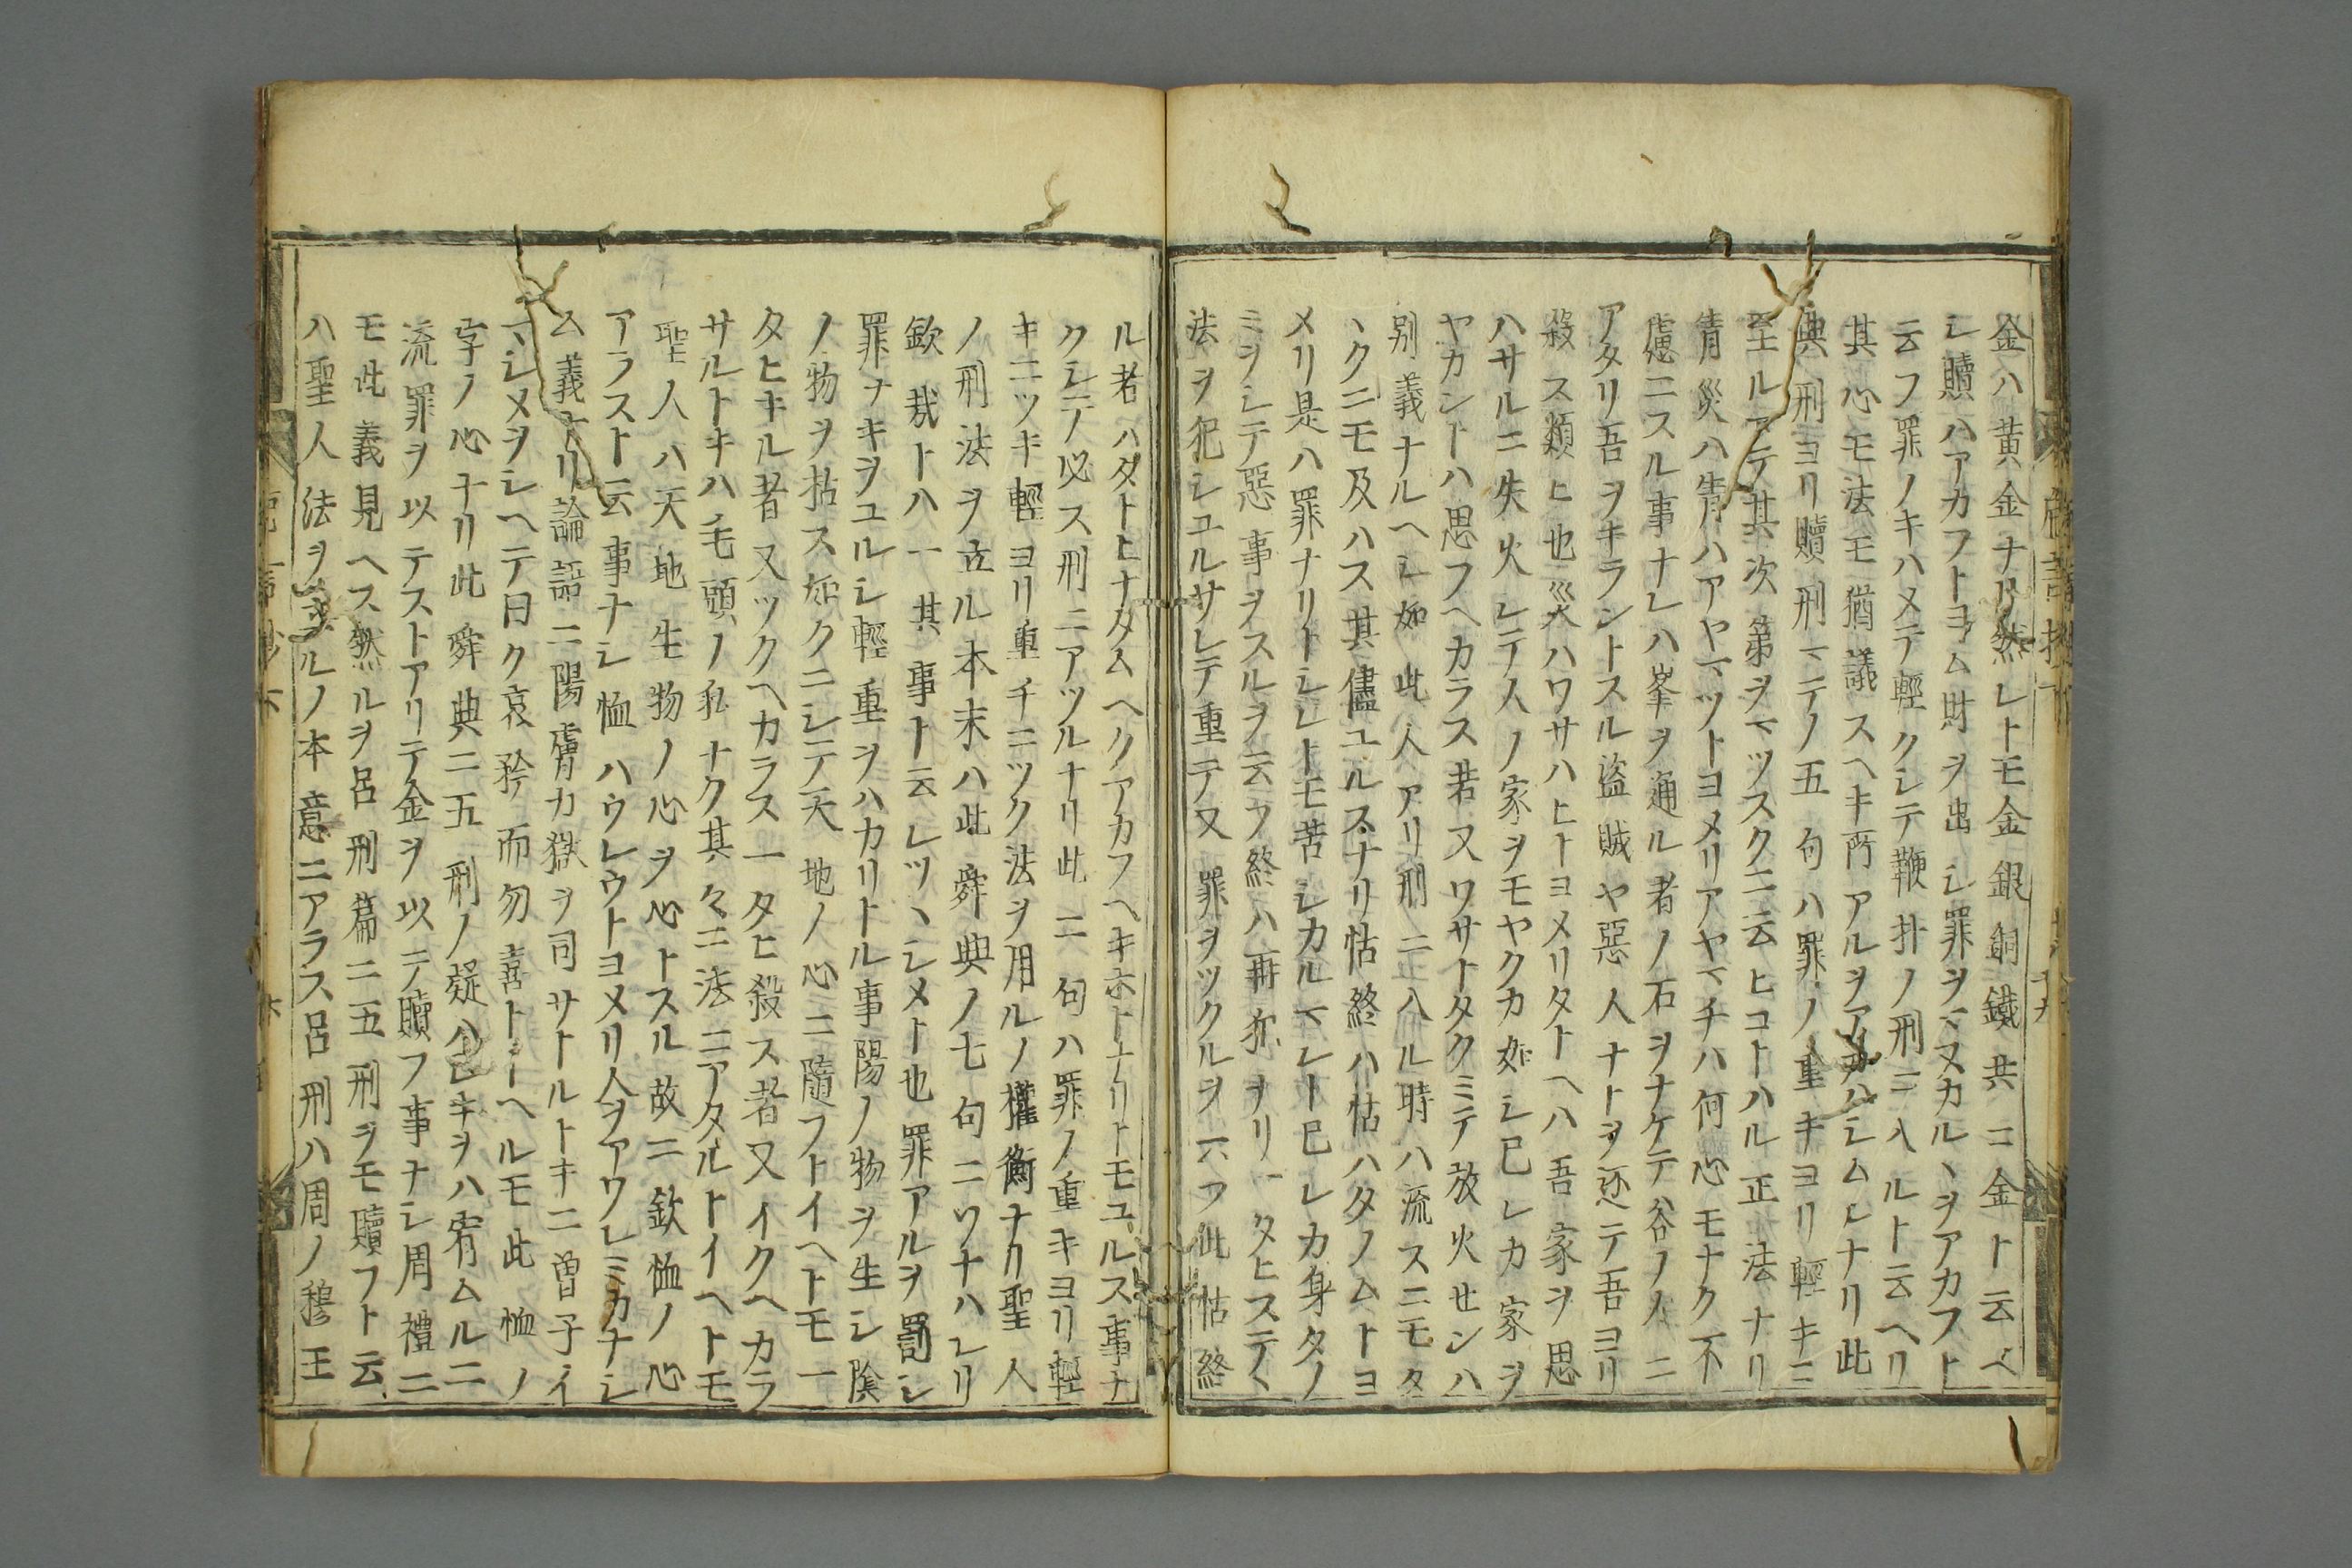 金ハ黄金ナリ然レトモ金銀銅鐵共ニ金ト云ヘ
シ贖ハアカフトヨム財ヲ出シ罪ヲマヌカルヽヲアカフト
云フ罪ノキハメテ輕クシテ鞭扑ノ刑ニ入ルト云ヘリ
其心モ法モ猶議スヘキ所アルヲアカハシムルナリ此
典刑ヨリ贖刑マテノ五句ハ罪ノ重キヨリ輕キニ
至ルマテ其次第ヲマツスクニ云ヒコトハル正法ナリ
眚災ハ眚ハアヤマツトヨメリアヤマチハ何心モナク不
慮ニスル事ナレハ峯ヲ通ル者ノ石ヲナケテ谷ノ人ニ
アタリ吾ヲキラントスル盜賊ヤ惡人ナトヲ逐テ吾ヨリ
殺ス類ヒ也災ハワサハヒトヨメリタトヘハ吾家ヲ思
ハサルニ失火シテ人ノ家ヲモヤクカ如シ已レカ家ヲ
ヤカントハ思フヘカラス若又ワサトタクミテ放火センハ
別義ナルヘシ如此人アリ刑ニ入ル時ハ流スニモタ
ヽクニモ及ハス其儘ユルスナリ怙終ハ怙ハタノムトヨ
メリ是ハ罪ナリトシレトモ苦シカルマシト已レカ身タノ
ミヲシテ惡事ヲスルヲ云フ終ハ再犯ヲリ一タヒステニ
法ヲ犯シユルサレテ重テ又罪ヲツクルヲ云フ此怙終
ル者ハタトヒナタムヘクアカフヘキホトナリトモユルス事ナ
クシテ必ス刑ニアツルナリ此二句ハ罪ノ重キヨリ輕
キニツキ輕ヨリ重チニツク法ヲ用ルノ權衡ナリ聖人
ノ刑法ヲ立ル本末ハ此舜典ノ七句ニツナハレリ
欽哉トハ一其事ト云レツヽシメト也罪アルヲ罰シ
罪ナキヲユルシ輕重ヲハカリトル事陽ノ物ヲ生シ陰
ノ物ヲ枯ス如クニシテ天地ノ心ニ隨フトイヘトモ一
タヒキル者又ツクヘカラス一タヒ殺ス者又イクヘカラ
サルトキハ毛頭ノ私ナク其々ニ法ニアタルトイヘトモ
聖人ハ天地生物ノ心ヲ心トスル故ニ欽恤ノ心
アラスト云事ナシ恤ハウレウトヨメリ人ヲアワレミカナシ
ム義ナリ論語ニ陽膚カ獄ヲ司サトルトキニ曽子イ
マシメヲシヘテ曰ク哀矜而勿喜トイヘルモ此恤ノ
字ノ心ナリ此舜典ニ五刑ノ疑ハシキヲハ宥ムルニ
流罪ヲ以テストアリテ金ヲ以テ贖フ事ナシ周禮ニ
モ此義見ヘス然ルヲ呂刑篇ニ五刑ヲモ贖フト云
ハ聖人法ヲ立ルノ本意ニアラス呂刑ハ周ノ穆王